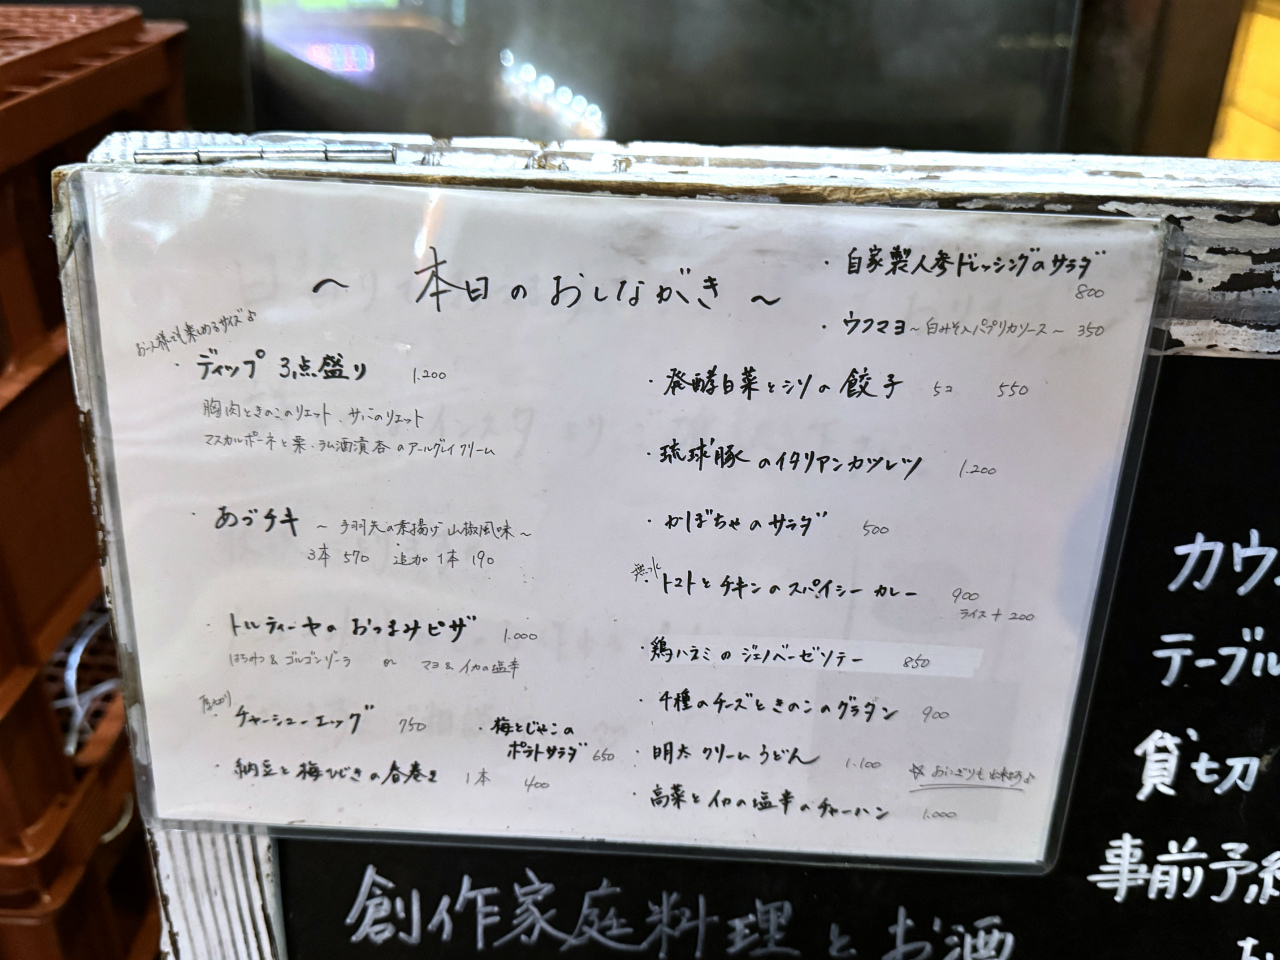 ~ 本日のおしながき ~
お一人様でも楽しめるサイズ♪
・ディップ 3点盛り 1.200
胸肉ときのこのリエット、サバのリエット
マスカルポーネと栗・ラム酒漬杏のアールグレイクリーム
・あづチキ ~手羽先の素揚げ 山椒風味~
3本 570 追加 1本 190
・トルティーヤのおつまみピザ 1.000
はちみつ&ゴルゴンゾーラ or マヨ&イカの塩辛
厚切り
・チャーシューエッグ 750
・納豆と梅ひじきの春巻き 1本 400
・梅とじゃこの
ポテトサラダ 650
・自家製人参ドレッシングのサラダ
800
・ウフマヨ~白みそパプリカソース~ 350
・発酵白菜とシソの餃子 5コ 550
・琉球豚のイタリアンカツレツ 1.200
・かぼちゃのサラダ 500
無水
・トマトとチキンのスパイシーカレー 900
ライス+200
・鶏ハラミのジェノベーゼソテー 850
・4種のチーズときのこのグラタン 900
・明太クリームうどん 1.100
☆おにぎりも出来ます♪
・高菜とイカの塩辛のチャーハン 1.000
創作家庭料理とお酒
カウ
テーブル
貸切
事前予約